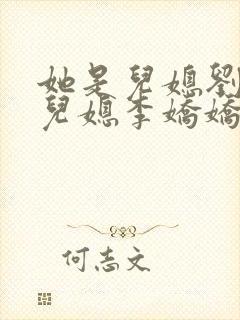 她是兒媳劉
兒媳李嬌嬌
何志文